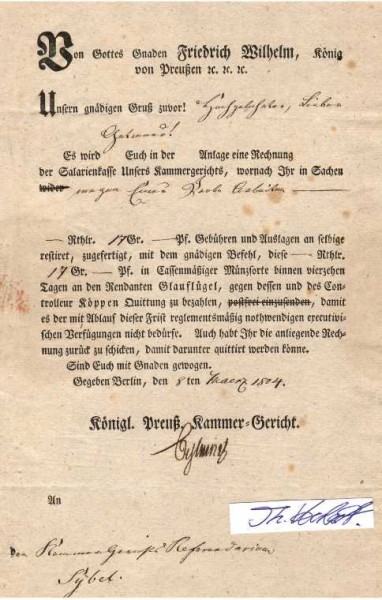 Von Gottes Gnaden Friedrich Wilhelm, König
von Preußen ꝛc. ꝛc. ꝛc.
Unsern gnädigen Gruß zuvor! Hochgelahrter, Lieber
Getreuer!
Es wird Euch in der Anlage eine Rechnung
der Salarienkasse Unsers Kammergerichts, wornach Ihr in Sachen
wider wegen Eures
— Rthlr. 17 Gr. — Pf. Gebühren und Auslagen an selbige
restiret, zugefertigt, mit dem gnädigen Befehl, diese — Rthlr.
17 Gr. — Pf. in Cassenmäßiger Münzsorte binnen vierzehen
Tagen an den Rendanten Glauflügel, gegen dessen und des Con-
trolleur Köppen Quittung zu bezahlen, postfrei einzusenden, damit
es der mit Ablauf dieser Frist reglementsmäßig nothwendigen executivi-
schen Verfügungen nicht bedürfe. Auch habt Ihr die anliegende Rech-
nung zurück zu schicken, damit darunter quittirt werden könne.
Sind Euch mit Gnaden gewogen.
Gegeben Berlin, den 8 ten Maerz 1804.
Königl. Preuß. Kammer-Gericht.
An
den Kammer Gerichts Referendarium
Sybel.